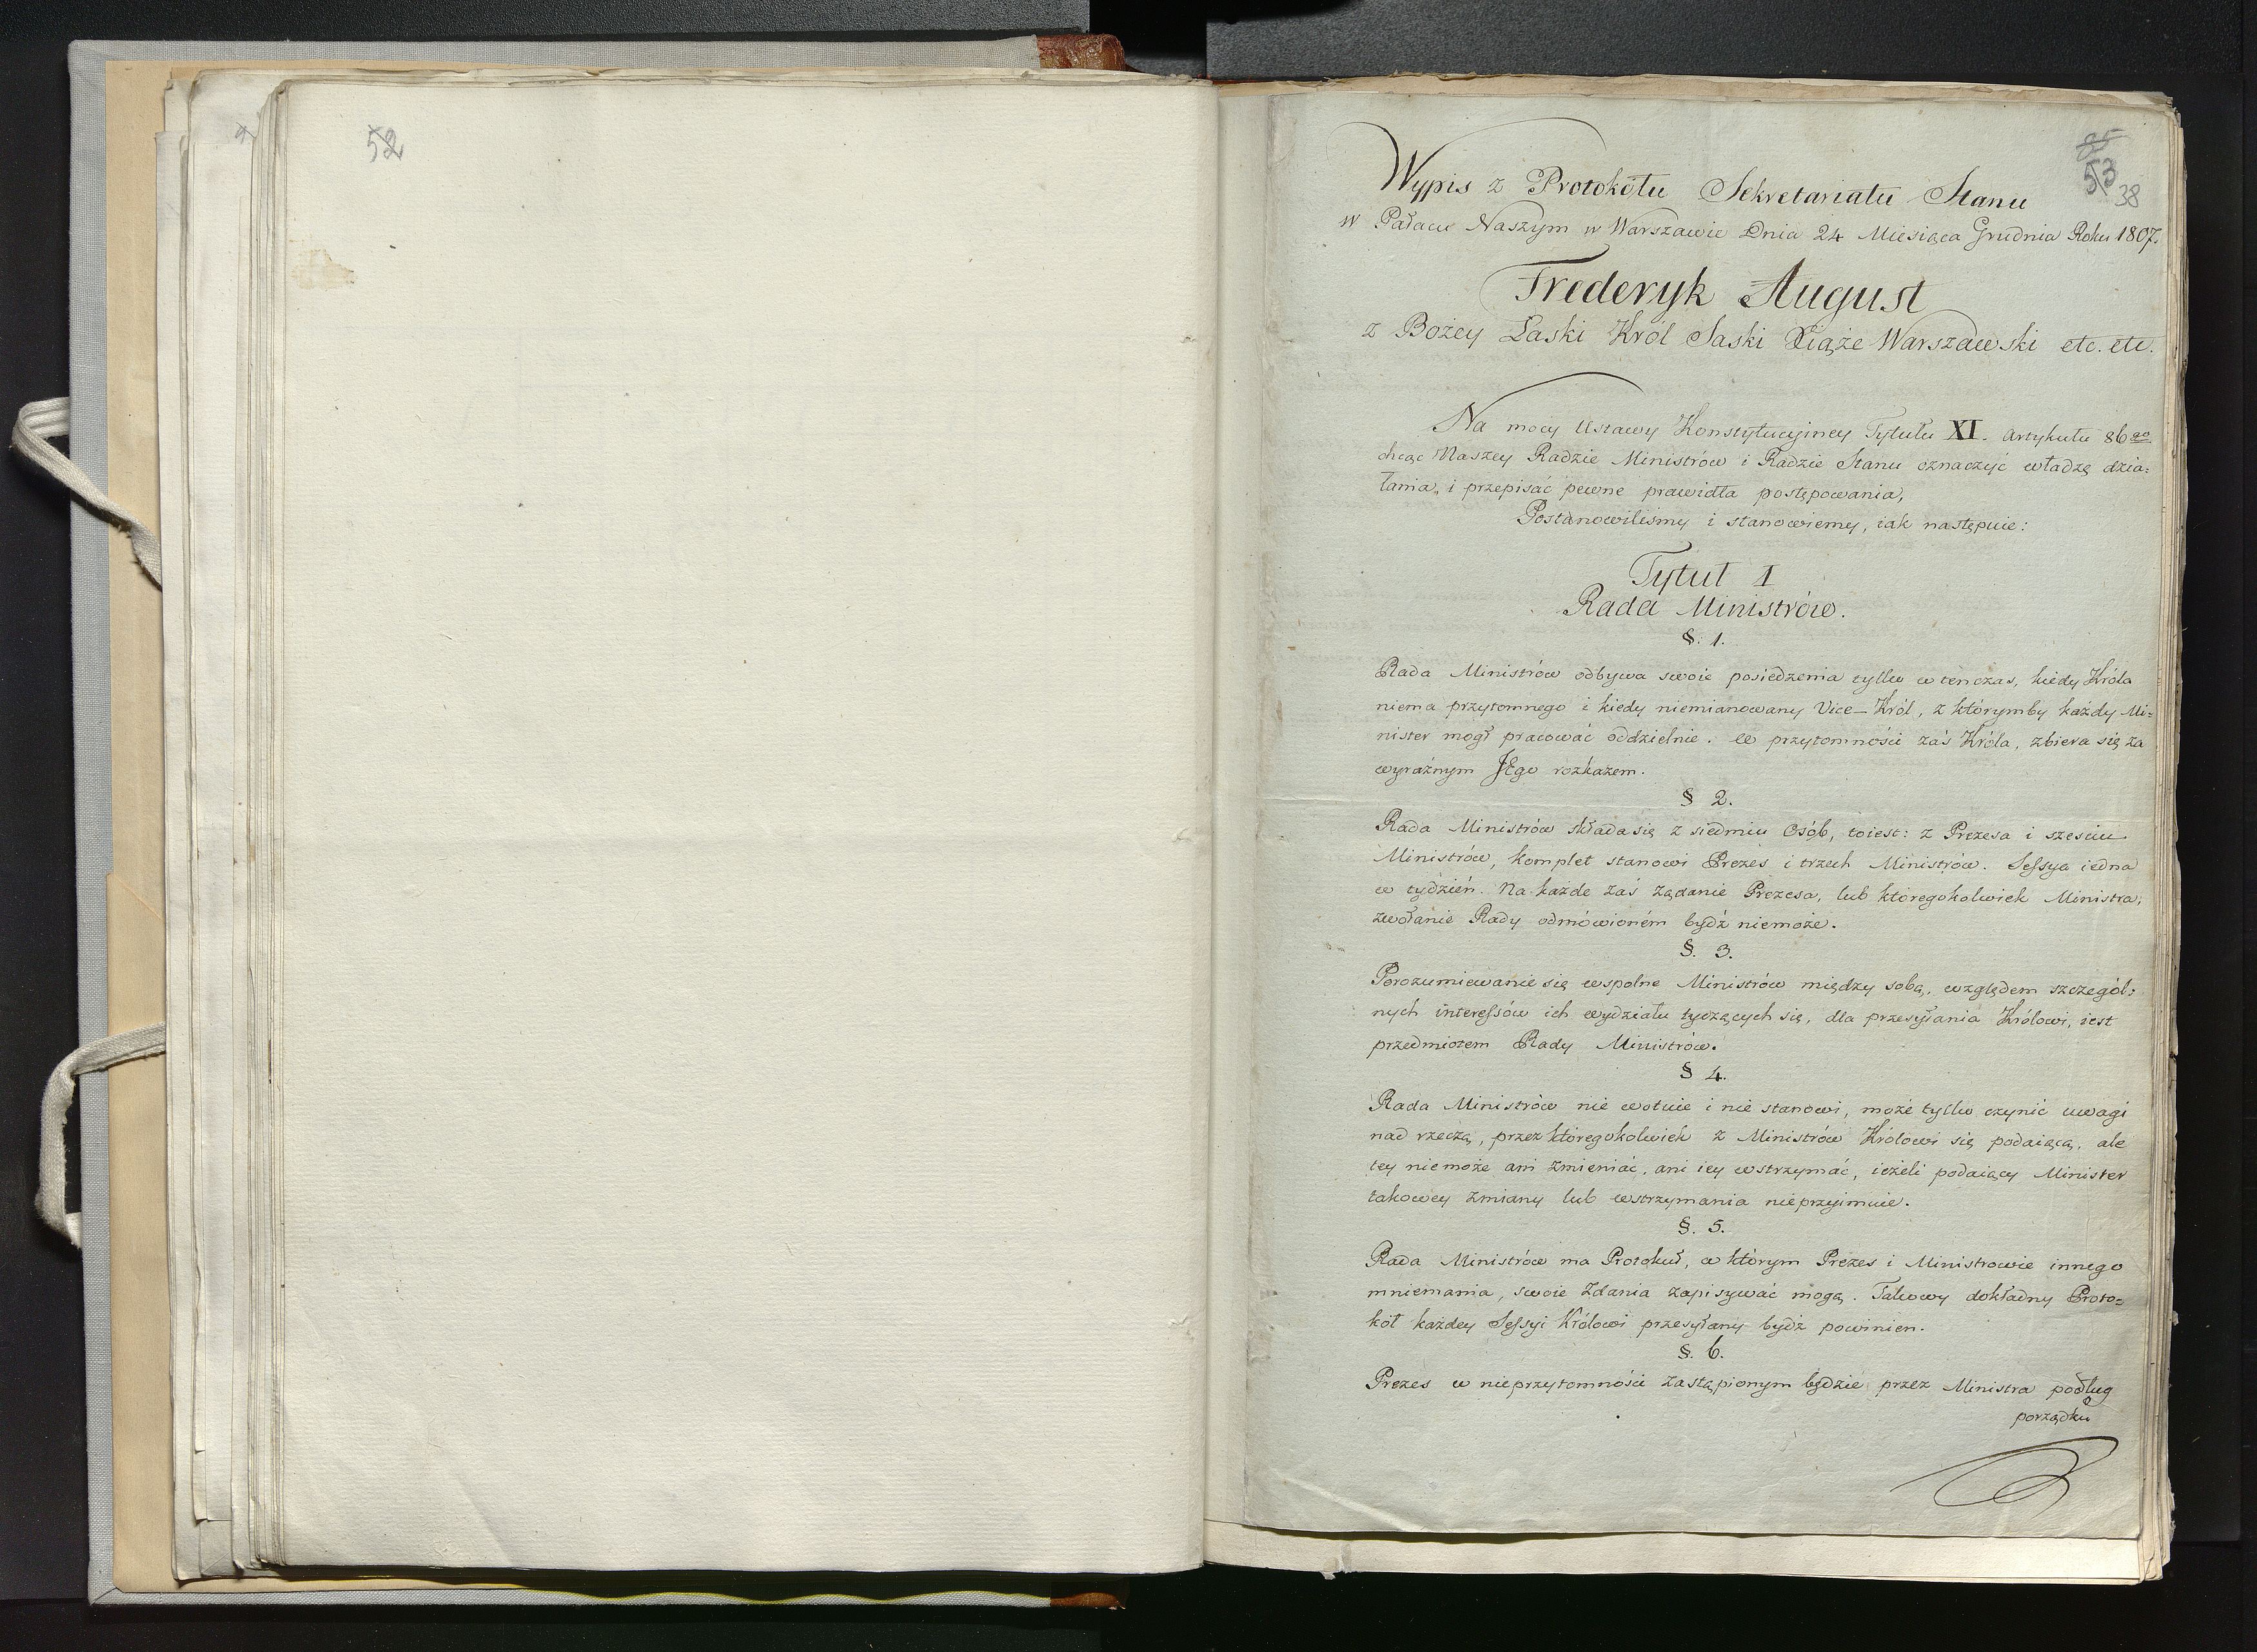 52
85
53
38
Wypis z Protokółu Sekretariatu Stanu
w Pałacu Naszym w Warszawie Dnia 24 Miesiąca Grudnia Roku 1807.
Frederyk August
z Bożey Łaski Król Saski Xiąże Warszawski etc. etc.
Na mocy Ustawy Konstytucyiney Tytułu XI. Artykułu 86go
chcąc Naszey Radzie Ministrów i Radzie Stanu oznaczyć władzę dzia=
łania, i przepisać pewne prawidła postępowania,
Postanowiliśmy i stanowiemy, iak następuie:
Tytuł I
Rada Ministrów.
§. 1.
Rada Ministrów odbywa swoie posiedzenia tylko w ten czas, kiedy Króla
niema przytomnego i kiedy niemianowany Vice-Król, z którymby każdy Mi=
nister mogł pracować oddzielnie. W przytomności zaś Króla, zbiera się za
wyraźnym JEgo rozkazem.
§ 2.
Rada Ministrów składa się z siedmiu Osób, toiest: z Prezesa i sześciu
Ministrów, komplet stanowi Prezes i trzech Ministrów. Sessya iedna
w tydzień. Na każde zaś żądanie Prezesa, lub któregokolwiek Ministra,
zwołanie Rady odmówioném bydź niemoże.
§. 3.
Porozumiewanie się wspolne Ministrów między sobą, względem szczegól=
nych interessów ich wydziału tyczących się, dla przesyłania Królowi, iest
przedmiotem Rady Ministrów.
§ 4.
Rada Ministrów nie wotuie i nie stanowi, może tylko czynić uwagi
nad rzeczą, przez któregokolwiek z Ministrów Królowi się podaiącą, ale
tey niemoże ani zmieniać, ani iey wstrzymać, ieżeli podaiący Minister
takowey zmiany lub wstrzymania nieprzyimuie.
§. 5.
Rada Ministrów ma Protokuł, w którym Prezes i Ministrowie innego
mniemania, swoie zdania zapisywać mogą. Takowy dokładny Proto=
kół każdey Sessyi Królowi przesyłany bydź powinien.
§. 6.
Prezes w nieprzytomności zastąpionym będzie przez Ministra podług
porządku